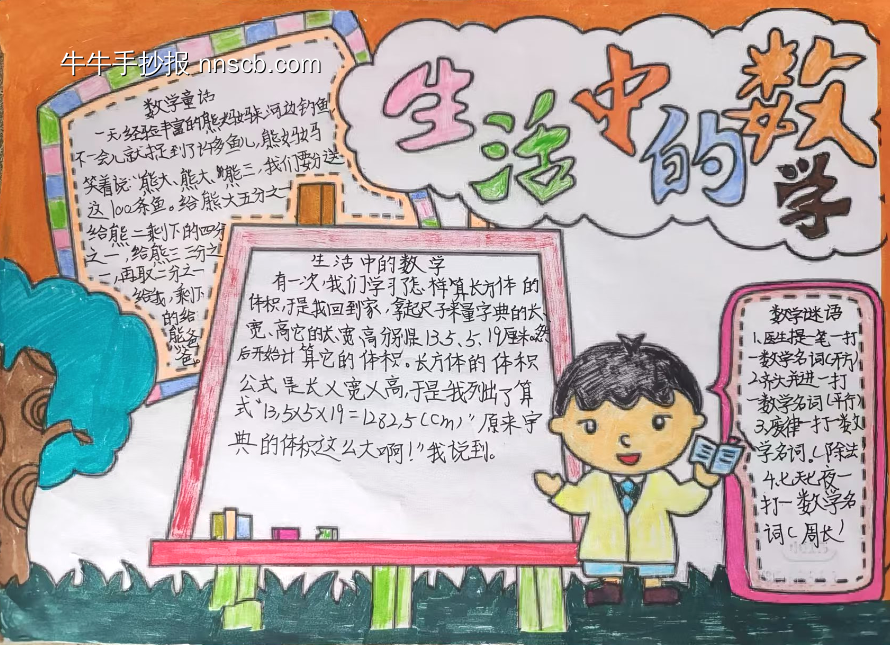 牛牛手抄报 nnscb.com
生活中的数学
数学童话
一天,经验丰富的熊妈妈来河边钓鱼,
不一会儿就捉到了许多鱼儿,熊妈妈
笑着说:“熊大、熊大、熊三,我们要分送
这100条鱼。给熊大五分之一
给熊二剩下的四分
之一,给熊三三分之
一,再取二分之一
给我,剩下
的给
熊爸
爸。
生活中的数学
有一次,我们学习了怎样算长方体的
体积,于是我回到家,拿起尺子来量字典的长、
宽、高它的长、宽、高分别是13.5、5、19厘米。然
后开始计算它的体积。长方体的体积
公式是长×宽×高,于是我列出了算
式“13.5×5×19=1282.5(cm)”原来字
典的体积这么大啊!”我说到。
数学谜语
1.医生提笔一打
一数学名词(开方)
2.齐头并进一打
一数学名词(平行)
3.旋律一打一数
学名词。(除法
4.七天七夜一
打一数学名
词(周长)